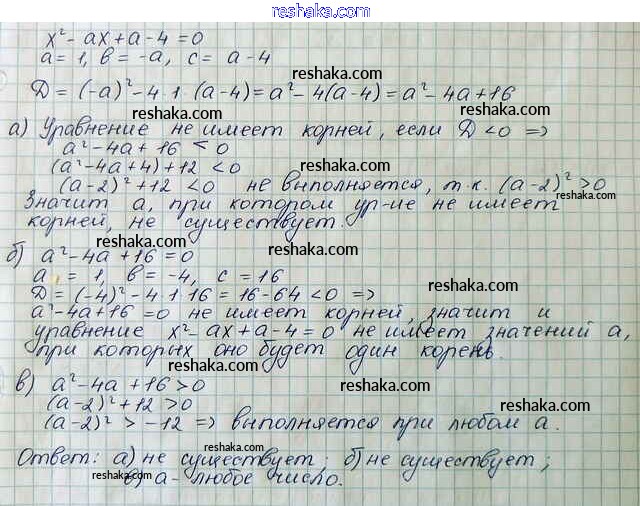 reshaka.com
x² - ax + a - 4 = 0
a = 1, в = -a, с = a - 4
reshaka.com
Д = (-a)² - 4·1·(a-4) = a² - 4(a-4) = a² - 4a + 16
reshaka.com reshaka.com
а) Уравнение не имеет корней, если Д < 0 =>
a² - 4a + 16 < 0
reshaka.com
(a² - 4a + 4) + 12 < 0
(a-2)² + 12 < 0 не выполняется, т.к. (a-2)² > 0
reshaka.com
Значит а, при котором ур-ие не имеет
корней, не существует.
reshaka.com reshaka.com
б) a² - 4a + 16 = 0
a = 1, в = -4, с = 16
reshaka.com
Д = (-4)² - 4·1·16 = 16 - 64 < 0 =>
reshaka.com
a² - 4a + 16 = 0 не имеет корней, значит и
уравнение x² - ax + a - 4 = 0 не имеет значений а,
reshaka.com
при которых оно будет один корень.
reshaka.com
в) a² - 4a + 16 > 0
reshaka.com
(a-2)² + 12 > 0
reshaka.com
(a-2)² > -12 => выполняется при любом а.
reshaka.com
Ответ: а) не существует; б) не существует;
reshaka.com
в) а - любое число.
reshaka.com